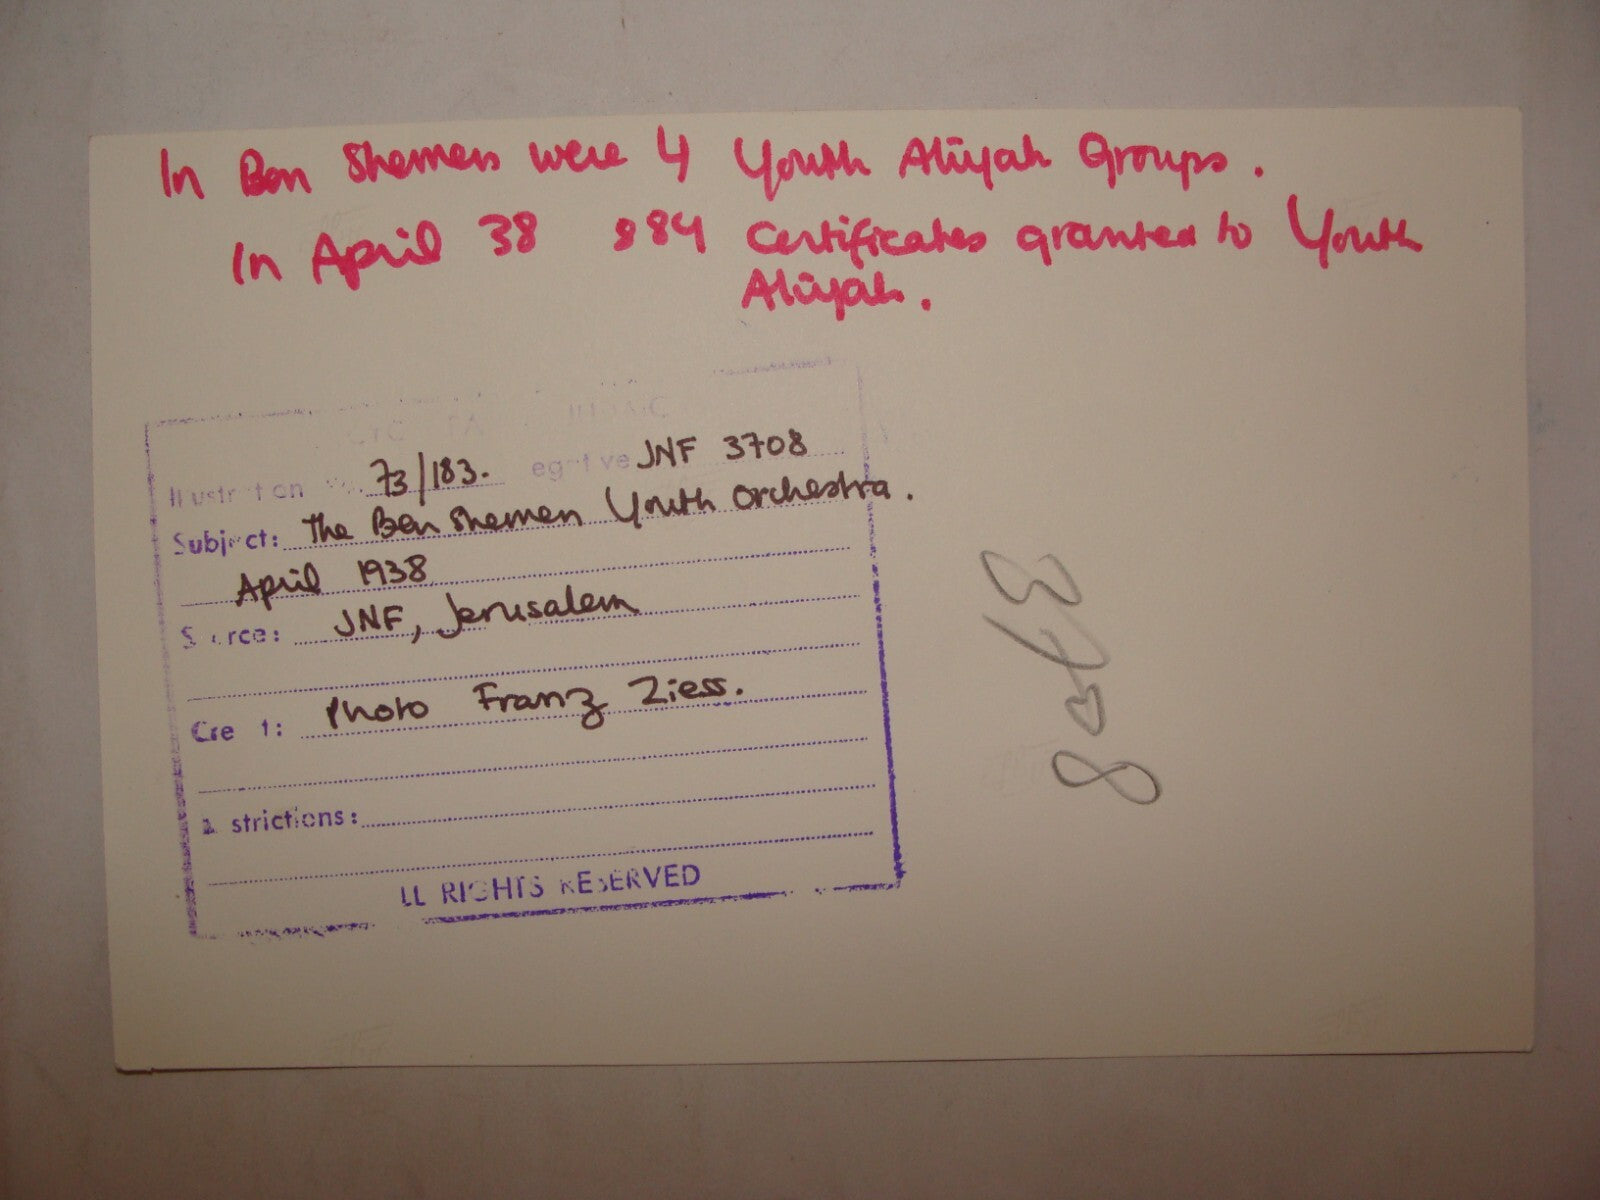 In Ben Shemen were 4 Youth Aliyah Groups.
In April 38 884 Certificates granted to Youth
Aliyah.
73/183. JNF 3708
Subject: The Ben Shemen Youth Orchestra.
April 1938
JNF, Jerusalem
Photo Franz Ziess.
strictions:
LL RIGHTS RESERVED